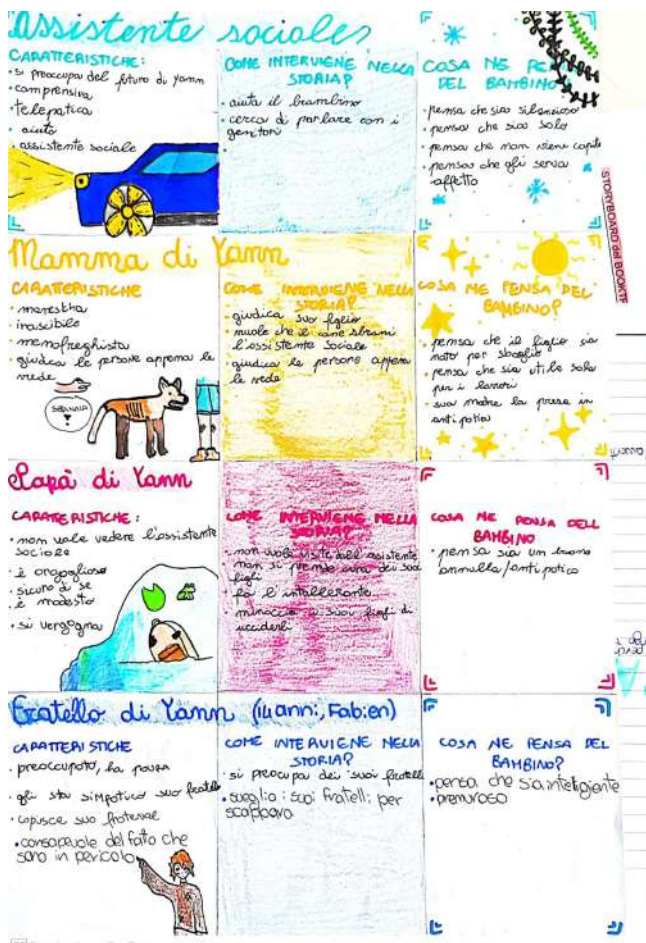 Assistente sociale
CARATTERISTICHE:
• si preoccupa del futuro di Yann
• comprensiva
• telepatica
• aiuta
• assistente sociale
COME INTERVIENE NELLA
STORIA?
• aiuta il brambino
• cerca di parlare con i
genitori
COSA NE PENSA
DEL BAMBINO?
• pensa che sia silenzioso
• pensa che sia solo
• pensa che non viene capito
• pensa che gli serva
affetto
STORYBOARD del BOOKTR
Mamma di Yann
CARATTERISTICHE
• irascibile
• menefreghista
• giudica le persone appena le
vede
SBRANALA
!
COME INTERVIENE NELLA
STORIA?
• giudica suo figlio
• vuole che il cane sbrani
l'assistente sociale
• giudica le persone appena
le vede
COSA NE PENSA DEL
BAMBINO?
• pensa che il figlio sia
nato per sbaglio
• pensa che sia utile solo
per i lavori
• sua madre lo prese in
antipatia
Papà di Yann
CARATTERISTICHE:
• non vole vedere l'assistente
sociale
• è orgoglioso
• sicuro di se
• è modesto
• si vergogna
COME INTERVIENE NELLA
STORIA?
• non vuole visite dall'assistente
non si prende cura dei suoi
figli
• fa l'intallerante
• minaccia i suoi figli di
ucciderli
COSA NE PENSA DELL
BAMBINO
• pensa sia un buono
annulla/antipatico
Fratello di Yann (iuanni, Fabien)
CARATTERISTICHE
• preoccupato, ha paura
• gli sta simpatico suo fratello
• capisce suo fraternal
• consapevole del fatto che
sono in pericolo
COME INTERVIENE NELLA
STORIA?
• si preocupa dei suoi fratelli
• sveglia i suoi fratelli per
scappare
COSA NE PENSA DEL
BAMBINO?
• pensa che sia inteligiente
• premuroso